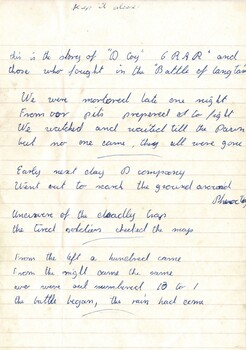 this is the story of "D Coy" 6 RAR" and
those who fought in the "Battle of Long Tan
We were mortored late one night
From our pits prepered at to fight
We watched and waited till the Dawn
but no one came, they all were gone
Early next day D company
Went out to reach the ground around
Unaware of the deadly trap
the tired soldiers checked the maps
From the left a hundred came
From the right came the same
over were out numbered 10 to 1
the battle began, the rain had come